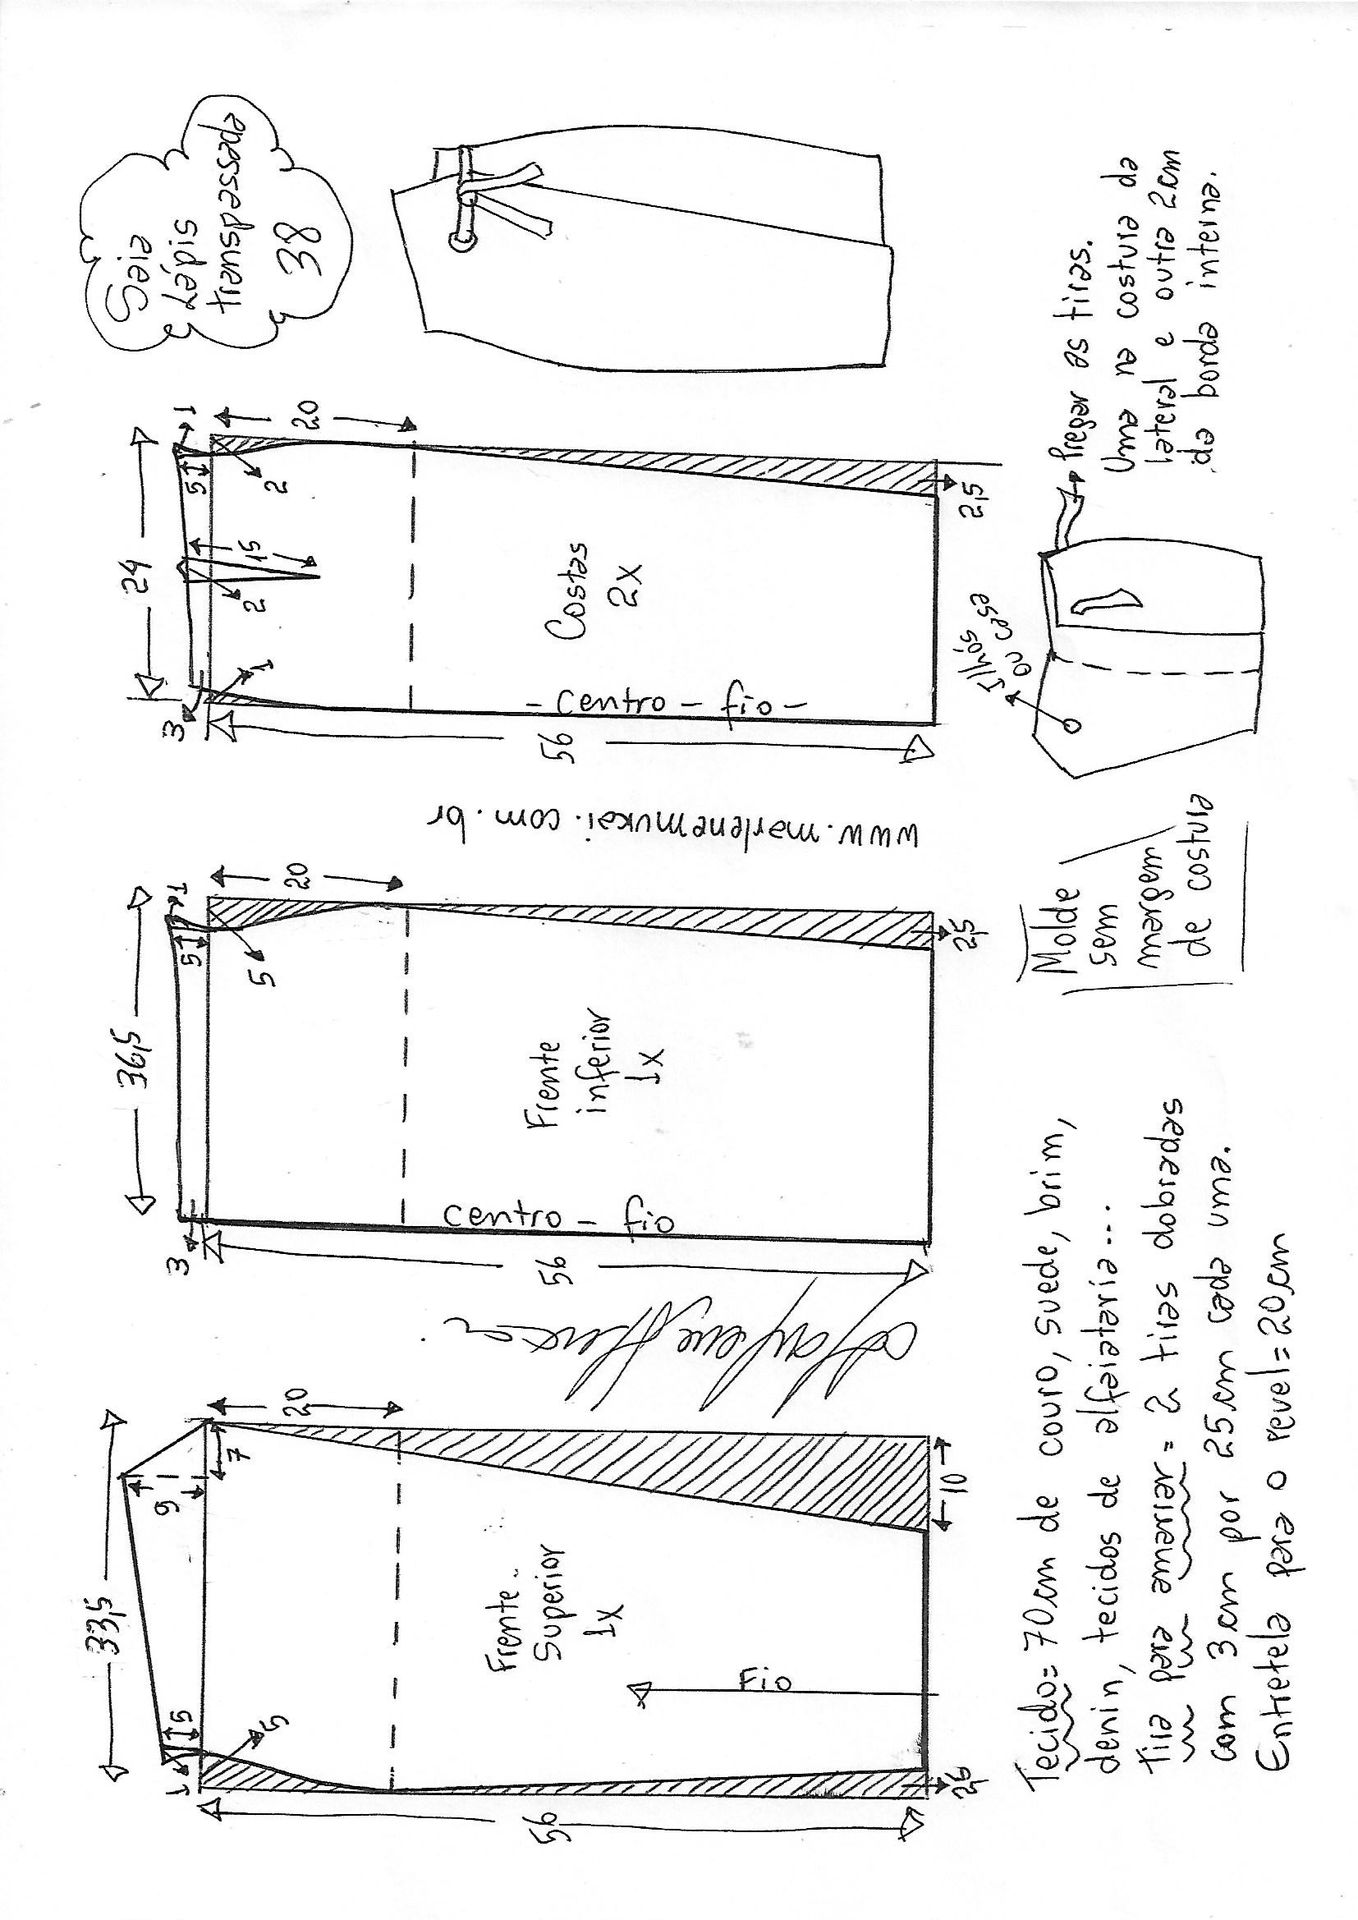 Saia
Lápis
transpassada
38
33,5
9
7
5
1
5
20
Frente
Superior
1x
Fio
10
2,5
56
36,5
1
5
3
5
20
Frente
inferior
1x
centro - fio
2,5
56
www.marlenemukai.com.br
24
1
5
2
15
2
1
3
20
Costas
2x
- centro - fio -
2,5
56
Tecido= 70cm de couro, suede, brim,
denin, tecidos de alfaiataria...
Tira para amarrar = 2 tiras dobradas
com 3cm por 25cm cada uma.
Entretela para o revel=20cm
Molde
sem
margem
de costura
Ilhós
ou case
Pregar as tiras.
Uma na costura da
lateral e outra 2cm
da borda interna.